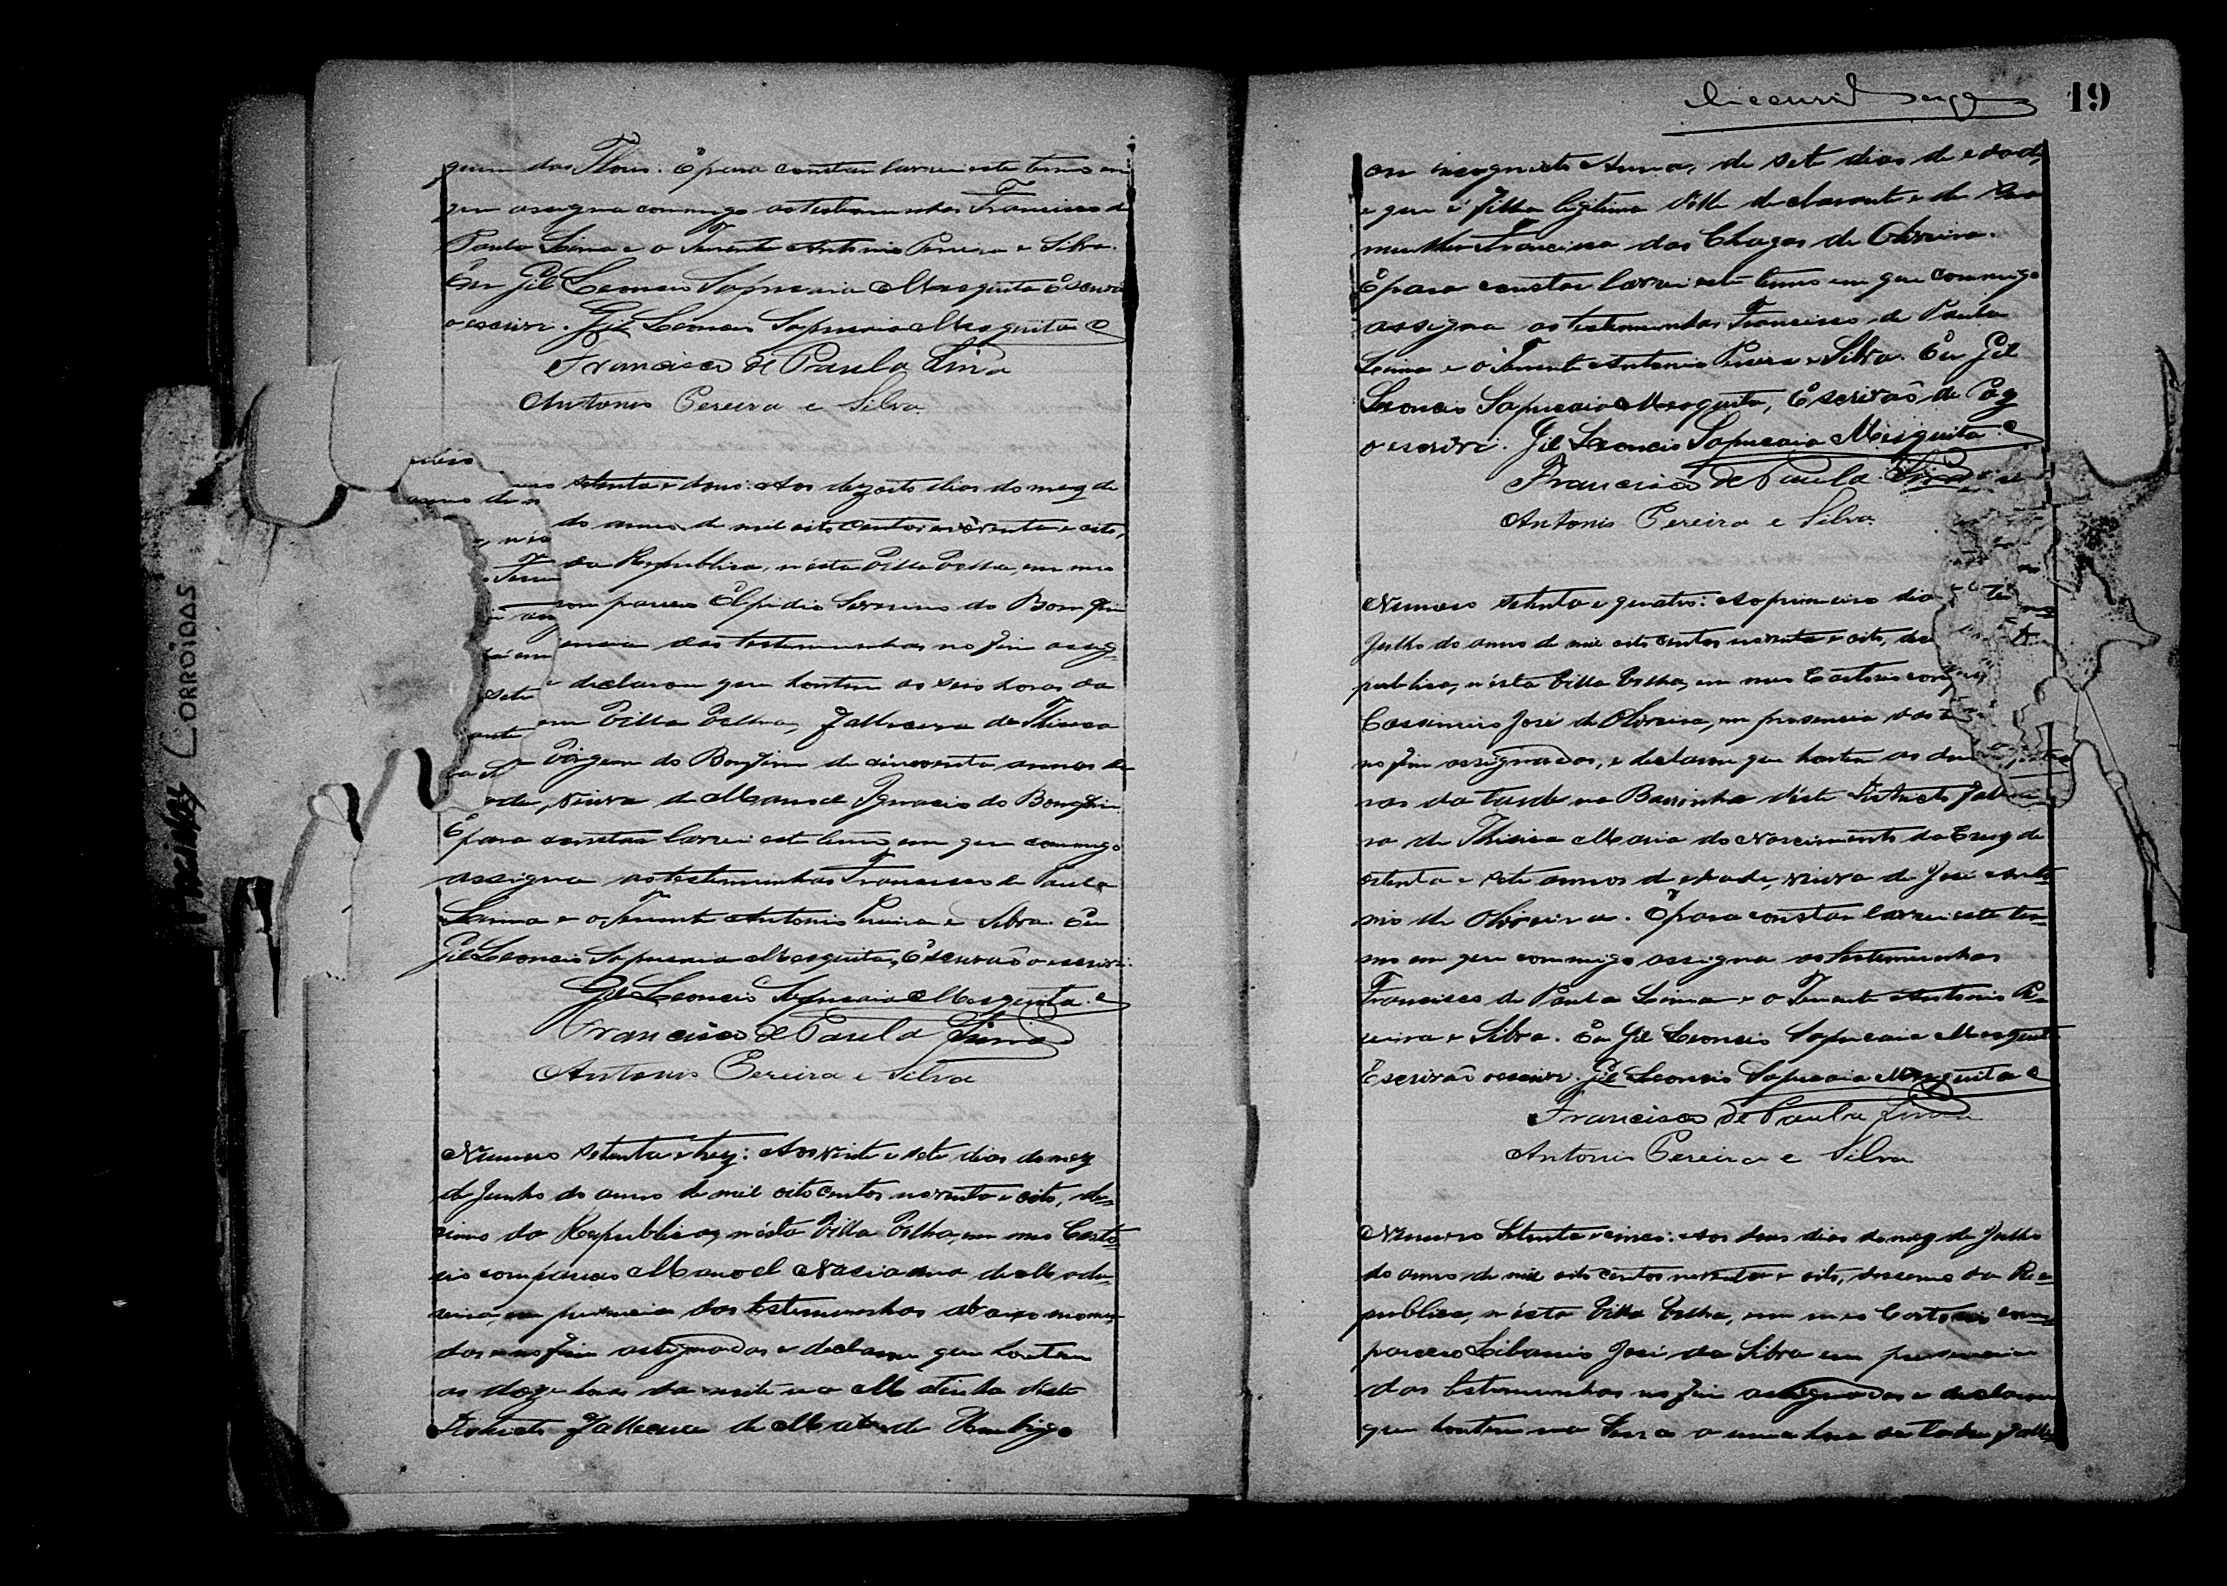 PAGINAS CORROIDAS
quim das Flores. E para constar lavrei este termo em
que assigna commigo as testemunhas Francisco de
Paula Lima e o Tenente Antonio Pereira e Silva.
Eu Gil Leoncio Sapucaia Mesquita Escrivão
o escrivi. Gil Leoncio Sapucaia Mesquita
Francisco de Paula Lima
Antonio Pereira e Silva
setenta e dous: Aos dezoito dias do mez de
do anno de mil oito centos noventa e oito,
da Republica, n'esta Villa Velha, em meu
compareceo Elpidio Severino do Bomfim
das testemunhas no fim assig-
e declarou que hontem as seis horas da
em Villa Velha, fallecera de Thisica
Virgem do Bomfim de cincoenta annos de
viuva de Manoel Ignacio do Bomfim.
E para constar lavrei este termo em que commigo
assigna as testemunhas Francisco de Paula
Lima e o Tenente Antonio Pereira e Silva. Eu
Gil Leoncio Sapucaia Mesquita, Escrivão o escrivi.
Gil Leoncio Sapucaia Mesquita
Francisco de Paula Lima
Antonio Pereira e Silva
Numero setenta e trez: Aos vinte e sete dias do mez
de Junho do anno de mil oito centos noventa e oito, de-
cimo da Republica, n'esta Villa Velha, em meu Carto-
rio compareceo Manoel de Madu-
reira, em presencia das testemunhas abaixo nomea-
das e no fim assignadas e declarou que hontem
as doze horas da noite na Matinha deste
Districto fallecera de Mal de Umbigo
19
incognito Anna, de sete dias de edade,
e que é filha legitima delle declarante e de sua
mulher Francisca das Chagas de Oliveira.
E para constar lavrei este termo em que commigo
assigna as testemunhas Francisco de Paula
Lima e o Tenente Antonio Pereira e Silva. Eu Gil
Leoncio Sapucaia Mesquita, Escrivão de Paz
o escrivi. Gil Leoncio Sapucaia Mesquita
Francisco de Paula Lima
Antonio Pereira e Silva
Numero setenta e quatro: Ao primeiro dia
Julho do anno de mil oito centos noventa e oito,
publica, n'esta Villa Velha, em meu Cartorio
Cassimiro José de Oliveira, em presencia das
no fim assignadas, e declarou que hontem as
ras da tarde na Barrinha deste Districto
ra de Thisica Maria do Nascimento da Cruz de
setenta e sete annos de edade, viuva de José Anto-
nio de Oliveira. E para constar lavrei este ter-
mo em que commigo assigna as testemunhas
Francisco de Paula Lima e o Tenente Antonio Pe-
reira e Silva. Eu Gil Leoncio Sapucaia Mesquita
Escrivão o escrivi. Gil Leoncio Sapucaia Mesquita
Francisco de Paula Lima
Antonio Pereira e Silva
Numero setenta e cinco: Aos dous dias do mez de Julho
do anno de mil oito centos noventa e oito, decimo da Re-
publica, n'esta Villa Velha, em meu Cartorio com-
pareceo Libanio José da Silva em presencia
das testemunhas no fim assignadas e declarou
que hontem na Serra a uma hora da tarde falle-